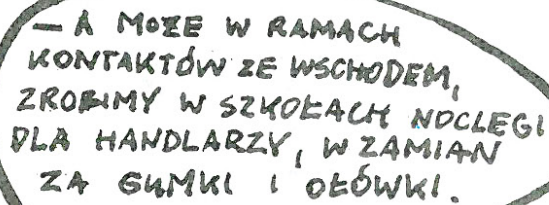 — A MOŻE W RAMACH
KONTAKTÓW ZE WSCHODEM,
ZROBIMY W SZKOŁACH NOCLEGI
DLA HANDLARZY, W ZAMIAN
ZA GUMKI I OŁÓWKI.